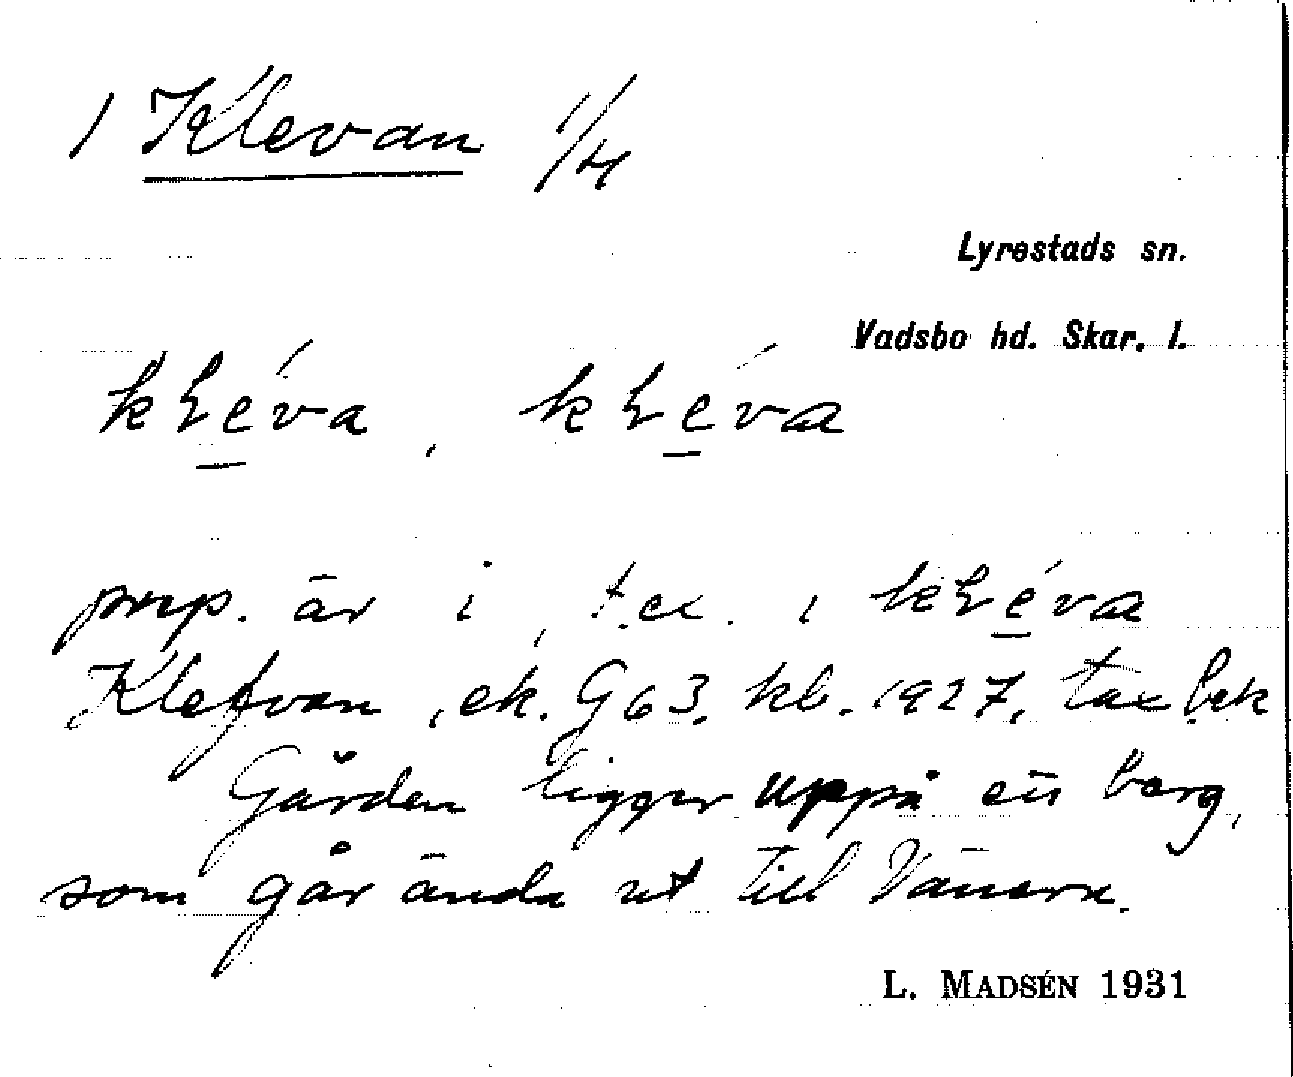 1 Klevan 1/4
Lyrestads sn.
Vadsbo hd. Skar. l.
kLéva, kLéva
prep. är i, t.ex. i kLéva
Klefvan, ek. G 63. kb. 1927, tax bok
Gården ligger uppå ett berg,
som går ända ut till Vänern.
L. MADSÉN 1931